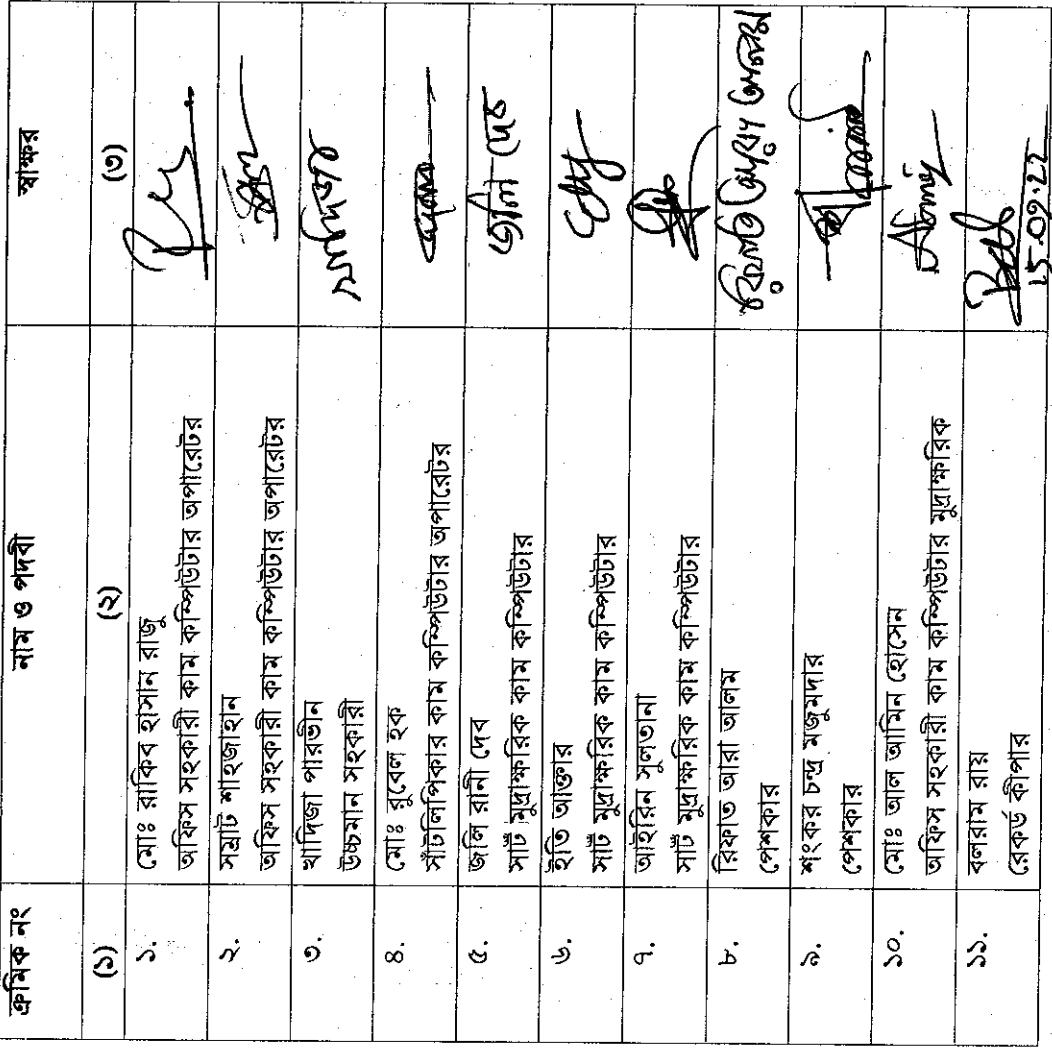 ক্রমিক নং নাম ও পদবী স্বাক্ষর
(১) (২) (৩)
১. মোঃ রাকিব হাসান রাজু
অফিস সহকারী কাম কম্পিউটার অপারেটর
২. সম্রাট শাহজাহান
অফিস সহকারী কাম কম্পিউটার অপারেটর
৩. খাদিজা পারভীন
উচ্চমান সহকারী
৪. মোঃ রুবেল হক
সাঁটলিপিকার কাম কম্পিউটার অপারেটর
৫. জলি রানী দেব
সাট মুদ্রাক্ষরিক কাম কম্পিউটার
৬. ইতি আক্তার
সাট মুদ্রাক্ষরিক কাম কম্পিউটার
৭. আইরিন সুলতানা
সাট মুদ্রাক্ষরিক কাম কম্পিউটার
৮. রিফাত আরা আলম
পেশকার
৯. শংকর চন্দ্র মজুমদার
পেশকার
১০. মোঃ আল আমিন হোসেন
অফিস সহকারী কাম কম্পিউটার মুদ্রাক্ষরিক
১১. বলরাম রায়
রেকর্ড কীপার
15.09.22